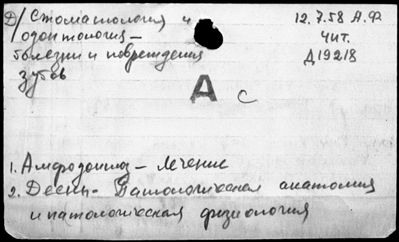 Д/ Стоматология и
одонтология –
болезни и повреждения
зубов
12.7.58 А.Ф
Чит.
Д19218
А
с
1. Амфодонтоз – Лечение
2. Десны - Патологическая анатомия
и патологическая физиология